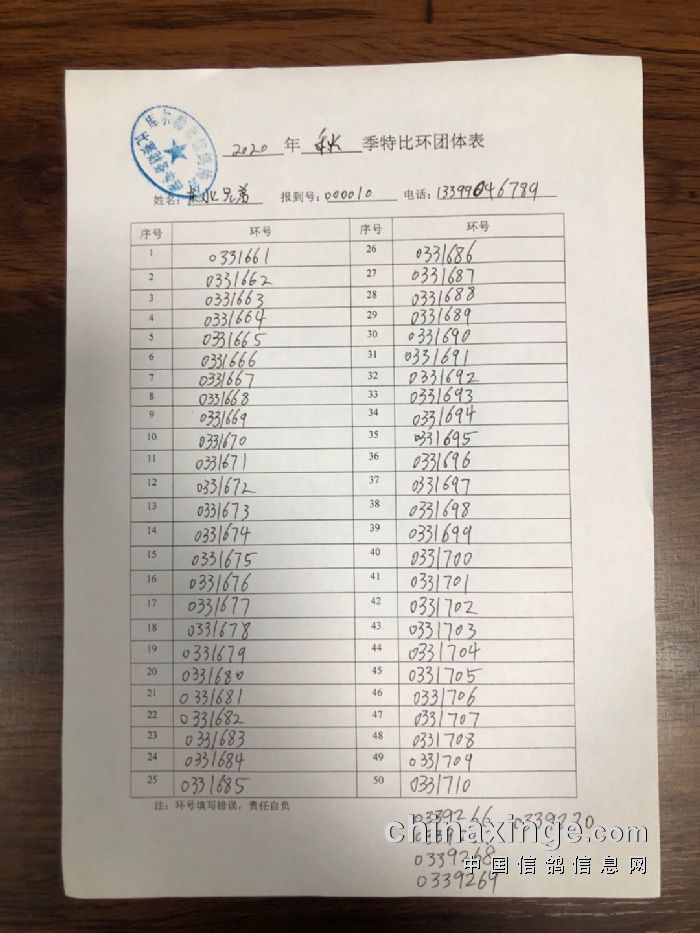 2020 年 秋 季特比环团体表
姓名: 兄弟 报到号: 000010 电话: 13399046789
序号 环号 序号 环号
1 0331661 26 0331686
2 0331662 27 0331687
3 0331663 28 0331688
4 0331664 29 0331689
5 0331665 30 0331690
6 0331666 31 0331691
7 0331667 32 0331692
8 0331668 33 0331693
9 0331669 34 0331694
10 0331670 35 0331695
11 0331671 36 0331696
12 0331672 37 0331697
13 0331673 38 0331698
14 0331674 39 0331699
15 0331675 40 0331700
16 0331676 41 0331701
17 0331677 42 0331702
18 0331678 43 0331703
19 0331679 44 0331704
20 0331680 45 0331705
21 0331681 46 0331706
22 0331682 47 0331707
23 0331683 48 0331708
24 0331684 49 0331709
25 0331685 50 0331710
注: 环号填写错误, 责任自负
0339266
chinaxinge.com
0339268
中国信鸽信息网
0339269